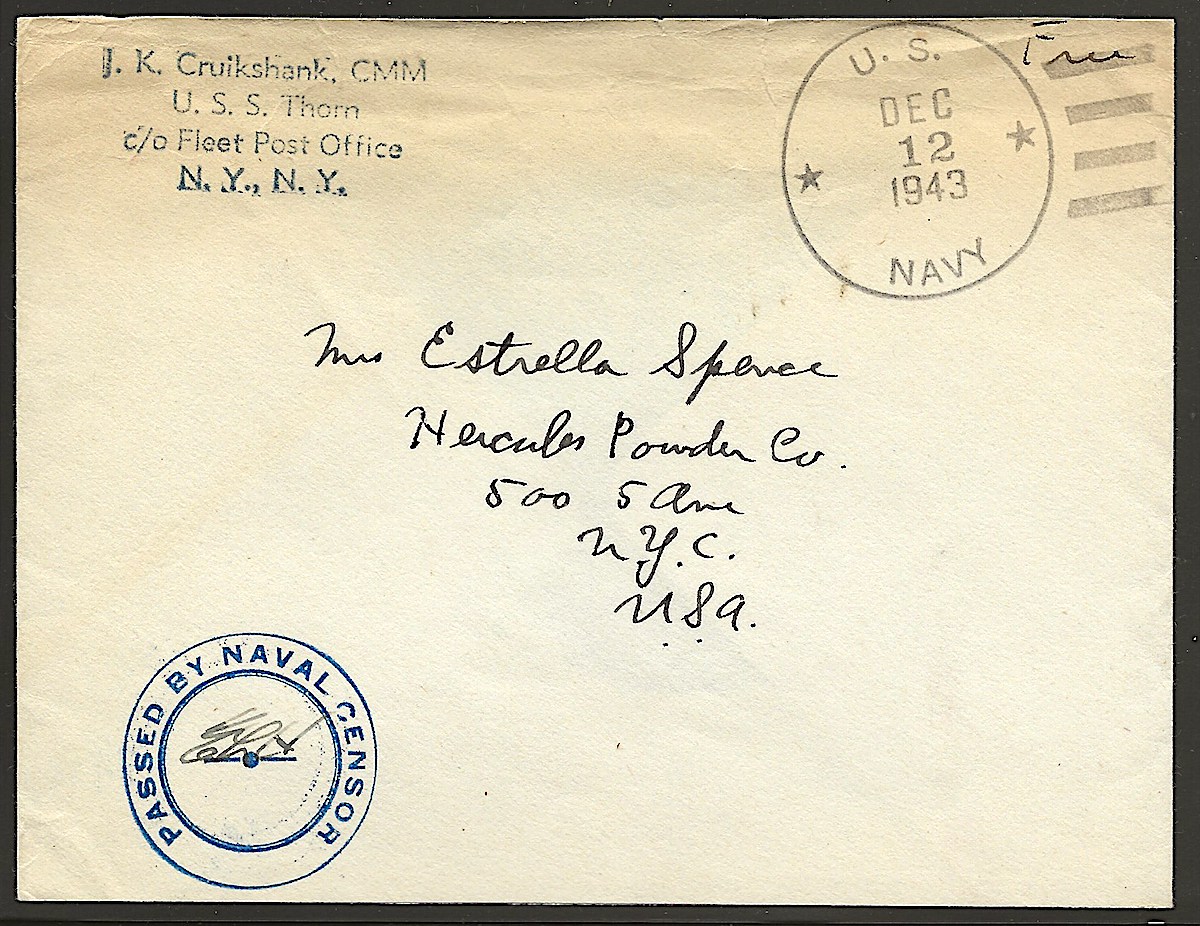 J. K. Cruikshank, CMM
U. S. S. Thorn
c/o Fleet Post Office
N. Y., N. Y.
U. S.
DEC
12
1943
NAVY
Free
Mrs Estrella Spence
Hercules Powder Co.
500 5 Ave
N.Y.C.
U.S.A.
PASSED BY NAVAL CENSOR